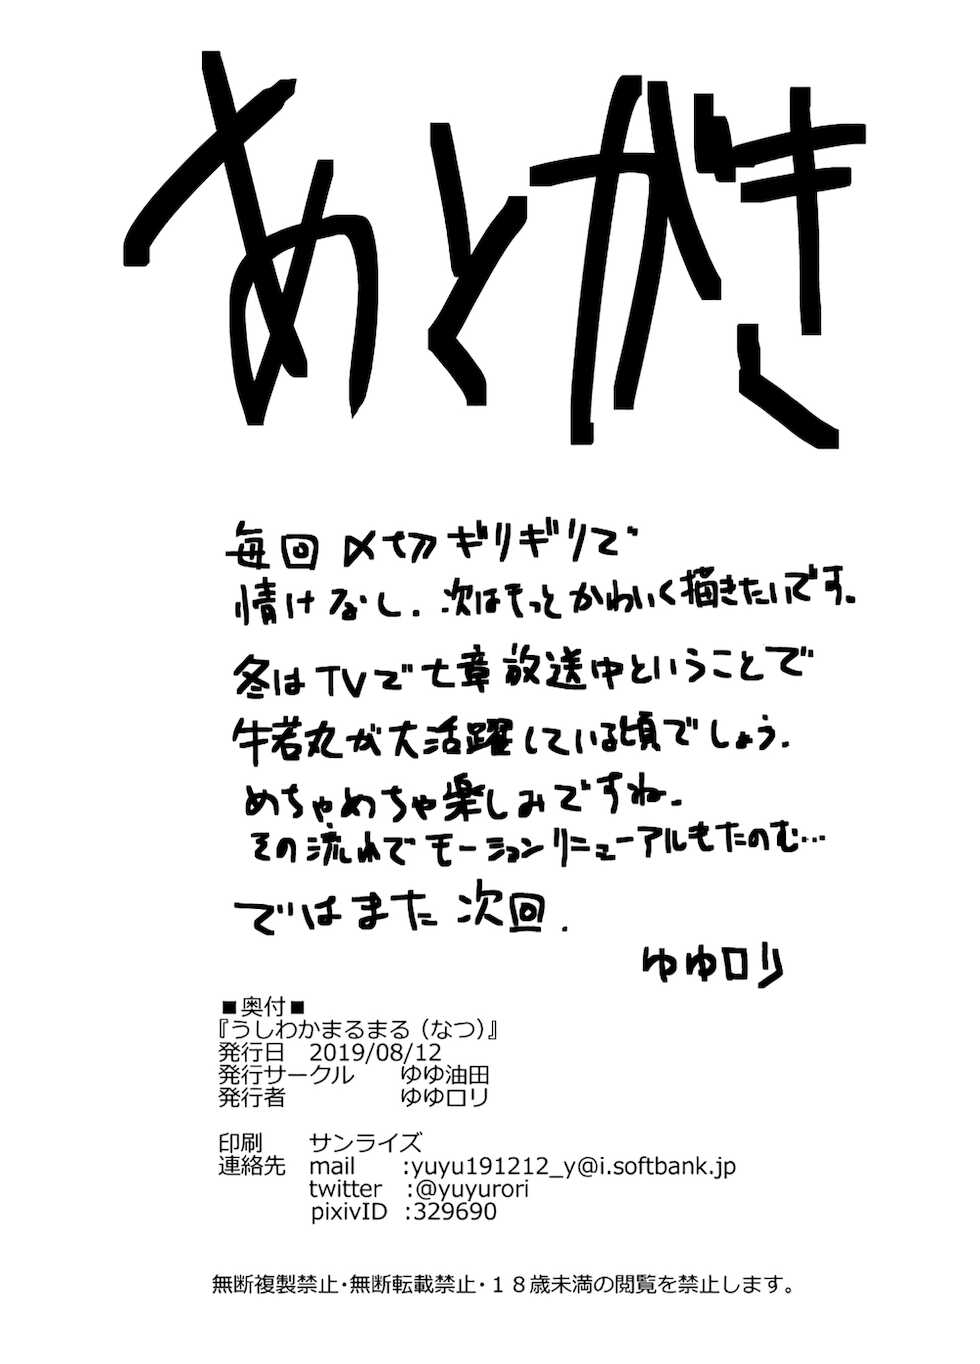 あとがき
毎回〆切ギリギリで
情けなし．次はもっとかわいく描きたいです。
冬はTVで七章放送中ということで
牛若丸が大活躍している頃でしょう．
めちゃめちゃ楽しみですね．
その流れでモーションリニューアルもたのむ…
ではまた次回．
ゆゆロリ
■奥付■
『うしわかまるまる（なつ）』
発行日　2019/08/12
発行サークル　　ゆゆ油田
発行者　　　　　ゆゆロリ
印刷　　サンライズ
連絡先　mail　　:yuyu191212_y@i.softbank.jp
twitter　:@yuyurori
pixivID　:329690
無断複製禁止･無断転載禁止･１８歳未満の閲覧を禁止します。